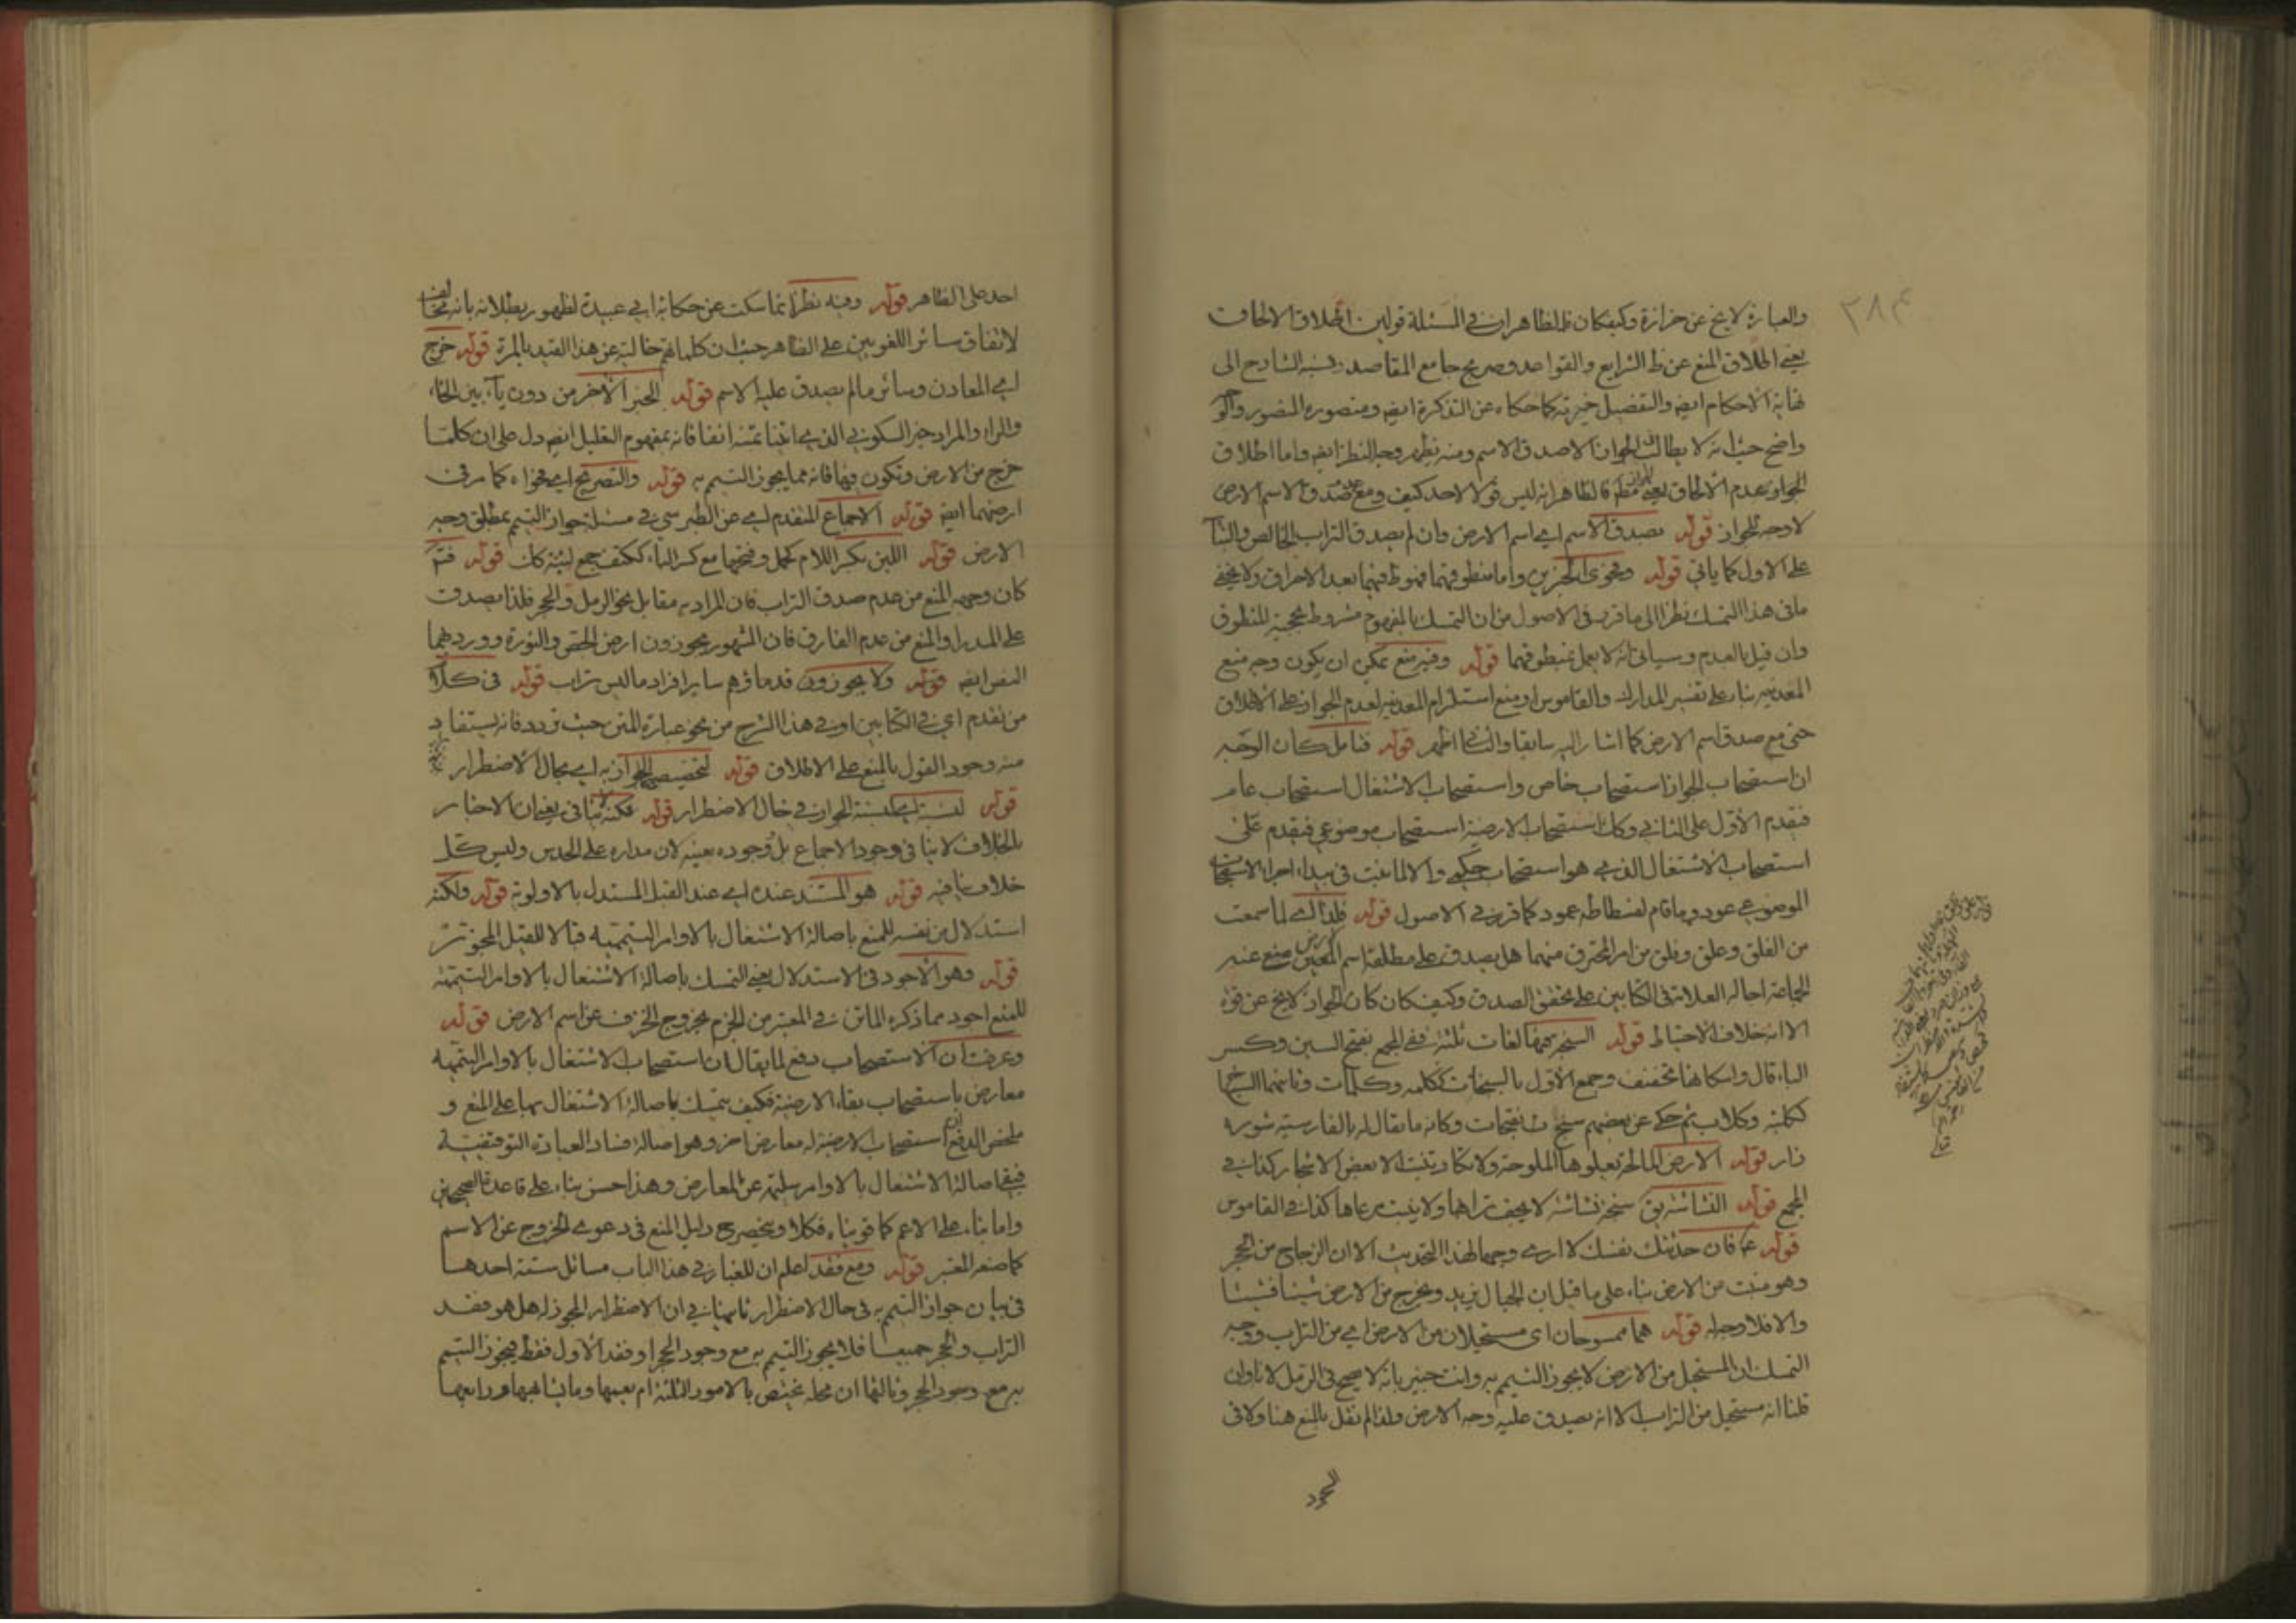 ٢٨٤
والعبارة لا يخ عن حزازة وكيفكان فالظاهر ان في المسئلة قولين اطلاق الالحاق
يعني اطلاق المنع عن ظ الشرايع والقواعد وصريح جامع المقاصد ونسبه الشارح الى
نهاية الاحكام ايضا والتفصيل خيرته كما حكاه عن التذكرة ايضا ومنصوره المنصور
واضح حيث انه لا يطالب الجواز الا صدق الاسم ومنه يظهر وجه النظر ايضا واما اطلاق
الجواز بعدم الالحاق يعني فالظاهر انه ليس قولا لاحد كيف ومع عدم صدق الاسم الارض
لا وجه للجواز قوله بصدق الاسم اي اسم الارض وان لم يصدق التراب الخالص والبناء
على الاول كما ياتي قوله وفحوى الخبرين واما منطوقهما فهو فيهما بعد الاحراق ولا يخفى
ما في هذا التمسك نظرا الى ما قرر في الاصول من ان التمسك بالمفهوم مشروط بحجية المنطوق
وان قيل بالعدم وسياتي انه لا يعمل بمنطوقهما قوله وفيه منع يمكن ان يكون وجه منع
المعدنية بناء على تفسير المدارك والقاموس او منع استلزام المعدنية لعدم الجواز على الاطلاق
حتى مع صدق اسم الارض كما اشار اليه سابقا والثاني اظهر قوله فتامل كان الوجه
ان استصحاب الجواز استصحاب خاص واستصحاب الاشتغال استصحاب عام
فيقدم الاول على الثاني وكان استصحاب الارضية استصحاب موضوعي فيقدم على
استصحاب الاشتغال الذي هو استصحاب حكمي والا لما ثبت في بيداء اجراء الاستصحاب
الموضوعي عود وما قام لفسطاطه عمود كما قرر في الاصول قوله فلذلك لما سمعت
من الفلق وعلق وفلق من امر المحترق منهما هل يصدق على مطلقه اسم الارض منع عنه
الجماعة احاله العلامة في الكتابين على تحقق الصدق وكيف كان كان الجواز لا يخ عن قوة
الا انه خلاف الاحتياط قوله السبخة فيها لغات ثلثة ففي المجمع بفتح السين وكسر
الباء قال واسكانها تخفيف وجمع الاول بالسبخات ككلمه وكلمات وثانيهما السباخ
ككلبة وكلاب ثم حكى عن بعضهم سبخات بفتحات وكانه ما يقال له بالفارسية شوره
زار قوله الارض المالحة يعلوها الملوحة ولا تكاد تنبت الا بعض الاشجار كذا في
المجمع قوله النشاشة يق سبخة نشاشة لا يجف ثراها ولا ينبت مرعاها كذا في القاموس
قوله عما فان حدثتك نفسك لا ارى وجها لهذا التحديث الا ان الزجاج من الحجر
وهو منبت من الارض بناء على ما قيل ان الجبال تزيد وتخرج من الارض شيئا فشيئا
والا فلا وجه له قوله هما ممسوخان اي مستحيلان من الارض اي من التراب ووجه
التمسك ان المستحيل من الارض لا يجوز التيمم به وانت خبير بانه لا يصح في الرمل لانا وان
قلنا انه مستحيل من التراب الا انه يصدق عليه وجه الارض ولذا لم نقل بالمنع هنا ولا في
الحجر
احد على الظاهر قوله وفيه نظر انما سكت عن حكاية ابي عبيدة لظهور بطلانه بانه مخالف
لاتفاق سائر اللغويين على الظاهر حيث ان كلماتهم خالية عن هذا القيد بالمرة قوله خرج
اي المعادن وسائر ما لم يصدق عليه الاسم قوله الخبر الاخر من دون ياء بين الخاء
والراء والمراد خبر السكوني الذي اثبتنا تمته انفا فانه بمفهوم التعليل ايضا دل على ان كلما
خرج من الارض وتكون فيها فانه مما يجوز التيمم به قوله والتصريح اي فحواه كما مر في
ارضهما ايضا قوله الاجماع المتقدم اي عن الطبرسي في مسئلة جواز التيمم بمطلق وجه
الارض قوله اللبن بكسر اللام كحمل وفتحها مع كسر الباء ككتف جمع لبنة كان قوله فتم
كان وجهه المنع من عدم صدق التراب فان المراد به مقابل نحو الرمل والحجر فلذا يصدق
على المدر او المنع من عدم الفارق فان المشهور يجوزون ارض الجص والنورة وورد بهما
النص ايضا قوله ولا يجوزون قدماؤهم ساير افراد ما ليس تراب قوله في كلام
من تقدم اي في الكتابين او في هذا الشرح من نحو عبارة المتن حيث تردد فانه يستفاد
منه وجود القول بالمنع على الاطلاق قوله لتخصيص الجواز به اي بحال الاضطرار
قوله لنسبته اي لنسبة الجواز في حال الاضطرار قوله لكنه لا ينافي يعني ان الاخبار
بالخلاف لا ينافي وجود الاجماع بل وجوده بعينه لان مداره على الحدس وليس كل
خلاف ينافيه قوله هو المستند عنده اي عند القيل المستدل بالاولوية قوله ولكنه
استدلال من نفسه للمنع باصالة الاشتغال بالاوامر التيممية قبالا للقيل المجوز
قوله وهو الاجود في الاستدلال يعني التمسك باصالة الاشتغال بالاوامر التيممية
للمنع اجود مما ذكره الماتن في المعتبر من الجزم بخروج الخزف عن اسم الارض قوله
وعرفت ان الاستصحاب دفع لما يقال ان استصحاب الاشتغال بالاوامر التيممية
معارض باستصحاب بقاء الارضية فكيف يتمسك باصالة الاشتغال بها على المنع و
ملخص الدفع ان استصحاب الارضية له معارض اخر وهو اصالة فساد العبادة التوقيفية
فيبقى اصالة الاشتغال بالاوامر سليمة عن المعارض وهذا حسن بناء على قاعدة الصحيحي
واما بناء على الاعم كما قويناه فكلا وينحصر ح دليل المنع في دعوى الخروج عن الاسم
كما صنعه المعتبر قوله ومع فقد اعلم ان للغبار في هذا الباب مسائل ستة احدها
في بيان جواز التيمم به في حال الاضطرار ثانيها في ان الاضطرار المجوز له هل هو فقد
التراب والحجر جميعا فلا يجوز التيمم به مع وجود الحجر او فقد الاول فقط فيجوز التيمم
به مع وجود الحجر وثالثها ان محله يختص بالامور الثلثة ام يعمها وما يشابهها ورابعها